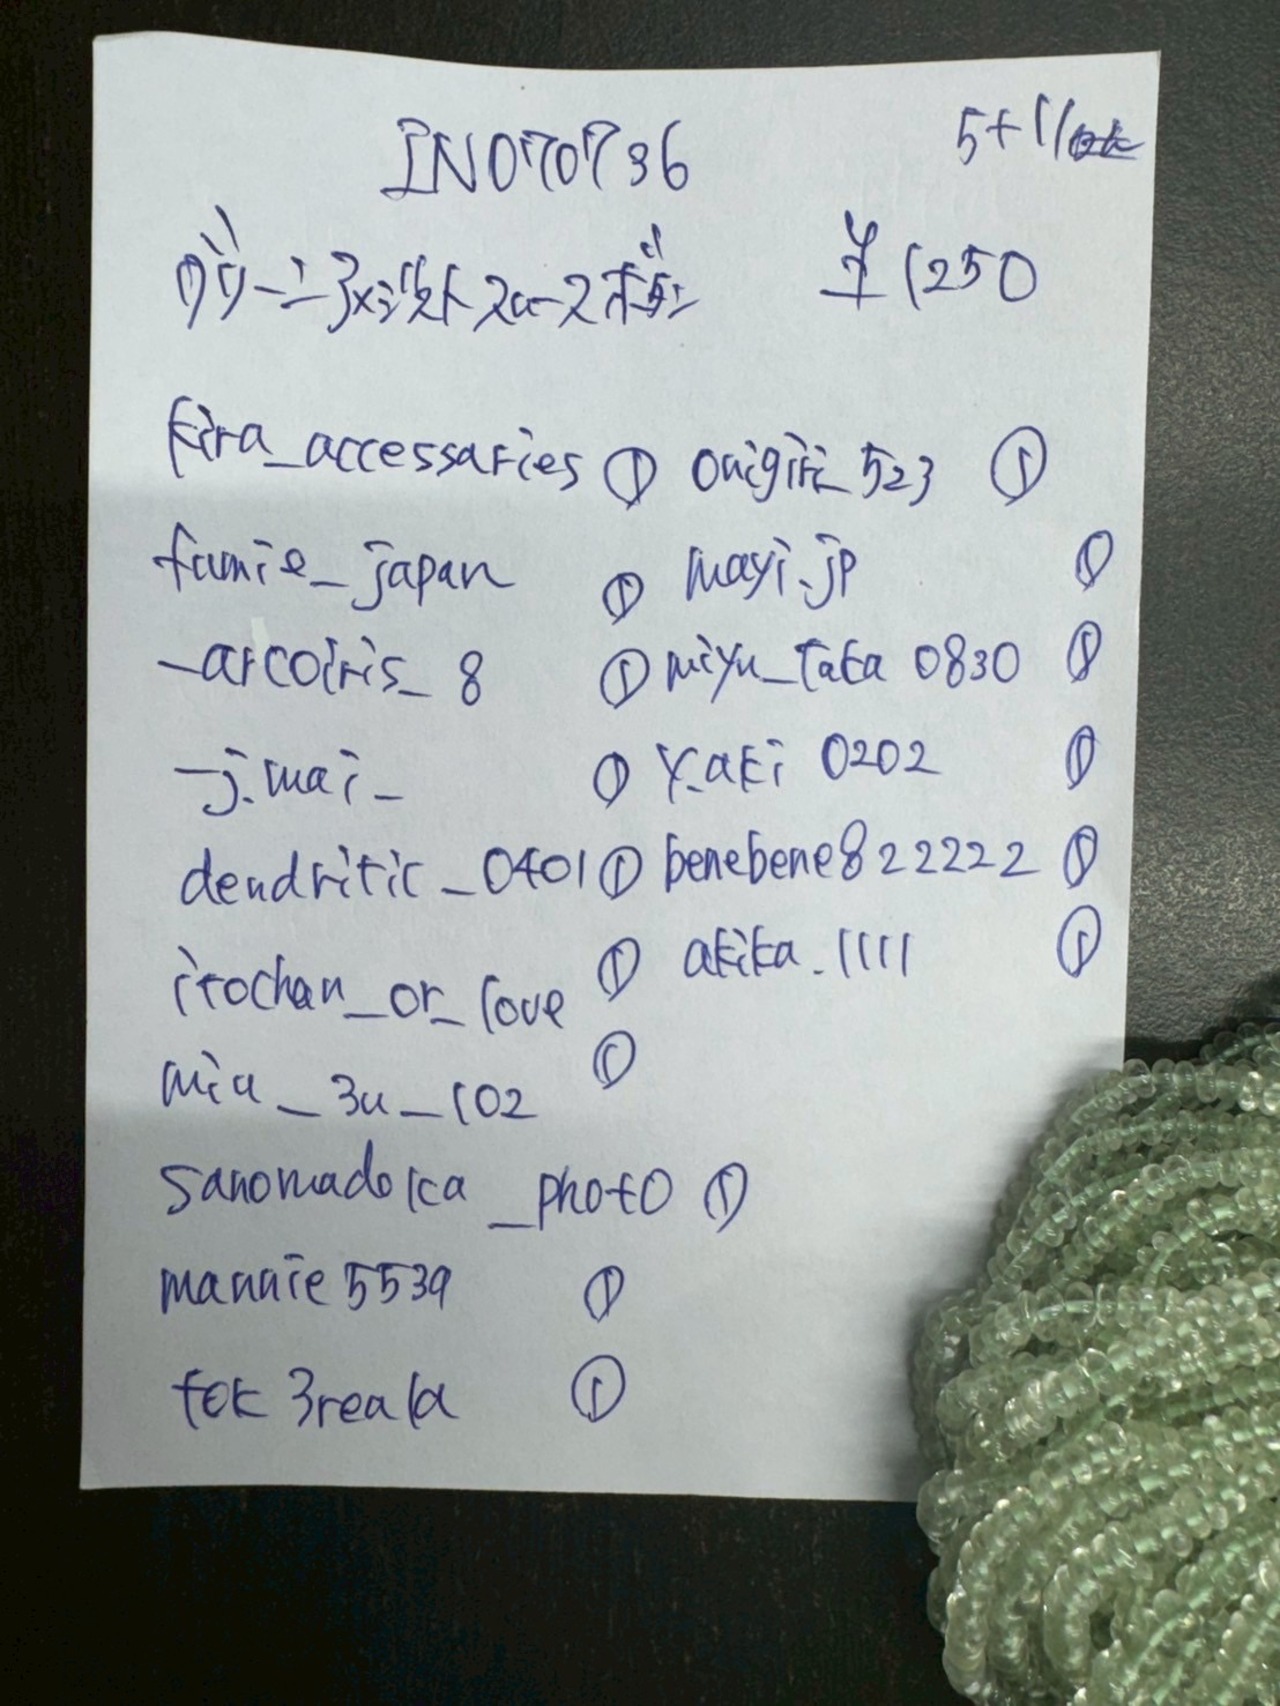 IN070736
5+1
グリーンアメジスト スロースボタン
¥1250
kira_accessaries ①
onigiri_523 ①
fumie_japan ①
mayi.jp ①
_arcoiris_8 ①
miyu_taka 0830 ①
_j.mai_ ①
y.aki 0202 ①
dendritic_0401 ①
benebene822222 ①
itochan_or_love ①
akika.1111 ①
miu_3u_102 ①
sanomadoka_photo ①
mannie5539 ①
tok3reala ①